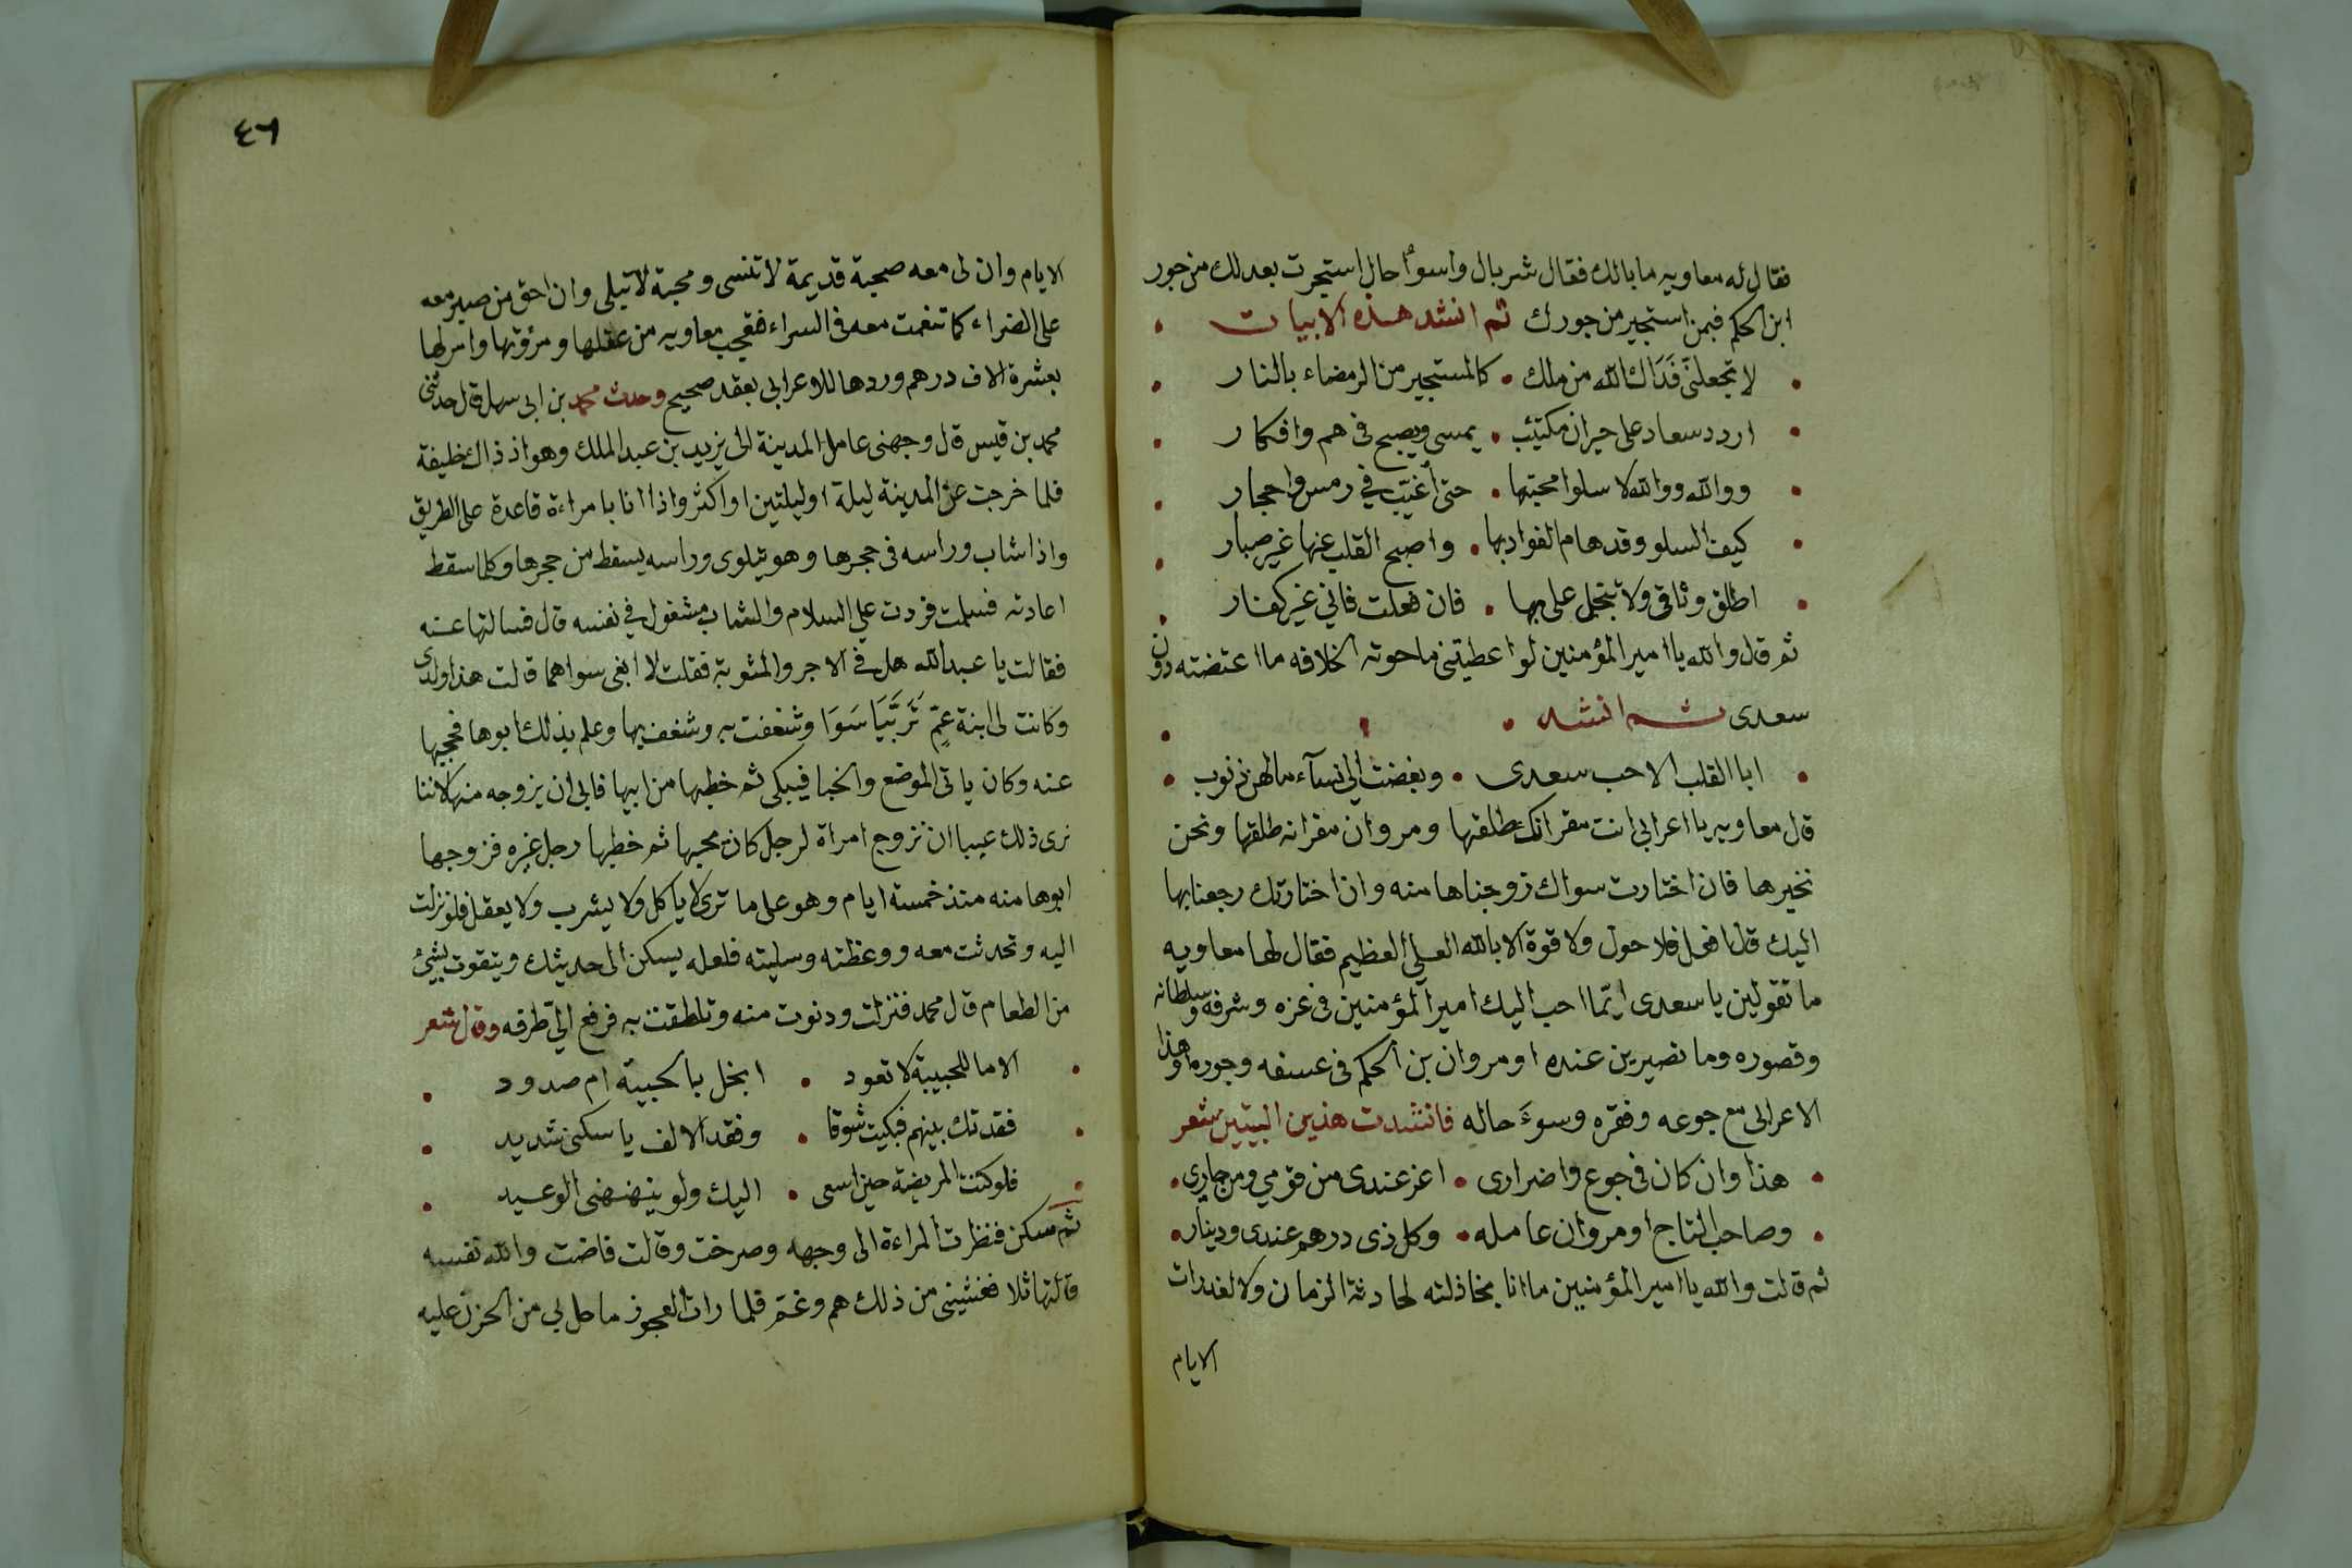 فقال له معاويه ما بالك فقال شر بال واسوأ حال استجرت بعدلك من جور
ابن الحكم فبمن استجير من جورك ثم انشد هذه الابيات
لا تجعلنّى فَدَاك الله من ملك • كالمستجير من الرمضاء بالنار
اردد سعاد على حيران مكتئب • يمسى ويصبح فى هم وافكار
ووالله ووالله لا سلوا محبتها • حتى أغيّب في رمس واحجار
كيف السلو وقد هام الفواد بها • واصبح القلب عنها غير صبار
اطلق وثاقى ولا تبخل على بها • فان فعلت فاني غير كفار
ثم قال والله يا امير المؤمنين لو اعطيتنى ما حوته الخلافه ما اعتضته دون
سعدى ثم انشد •
ابا القلب الا حب سعدى • وبغضت الي نسآء ما لهن ذنوب
قال معاويه يا اعرابى انت مقر انك طلقتها ومروان مقر انه طلقها ونحن
نخيرها فان اختارت سواك زوجناها منه وان اختارتك رجعنا بها
اليك قال افعل فلا حول ولا قوة الا بالله العلي العظيم فقال لها معاويه
ما تقولين يا سعدى ايّما احب اليك امير المؤمنين فى عزه وشرفه وسلطانه
وقصوره وما تصيرين عنده او مروان بن الحكم فى عسفه وجوره او هذا
الاعرابى مع جوعه وفقره وسوءَ حاله فانشدت هذين البيتين شعر
هذا وان كان فى جوع واضرارى • اعز عندى من قومي ومن جاري
وصاحب التاج او مروان عامله • وكل ذى درهم عندى ودينار
ثم قالت والله يا امير المؤمنين ما انا بخاذلته لحادثة الزمان ولا لغدرات
الايام
٤٦
الايام وان لى معه صحبة قديمة لا تنسى ومحبة لا تبلى وان احق من صبر معه
على الضراء كما تنعمت معه فى السراء فعجب معاويه من عقلها ومروّتها وامر لها
بعشرة الاف درهم وردها للاعرابى بعقد صحيح وحدث محمد بن ابى سهل قال حدثنى
محمد بن قيس قال وجهنى عامل المدينة الى يزيد بن عبد الملك وهو اذ ذاك خليفة
فلما خرجت عن المدينة ليلة او ليلتين او اكثر واذا انا بامراءة قاعدة على الطريق
واذا شاب وراسه فى حجرها وهو يتلوى وراسه يسقط من حجرها وكلما سقط
اعادته فسلمت فردت علي السلام والشاب مشغول في نفسه قال فسالتها عنه
فقالت يا عبد الله هل في الاجر والمثوبة فقلت لا ابغى سواهما قالت هذا ولدى
وكانت لى ابنة عمّ تَرَبَّيَا سَوَا وشغفت به وشغف بها وعلم بذلك ابوها فحجبها
عنه وكان ياتى الموضع والخبا فيبكى ثم خطبها من ابيها فابى ان يزوجه منها لاننا
نرى ذلك عيبا ان نزوج امراة لرجل كان يحبها ثم خطبها رجل غيره فزوجها
ابوها منه منذ خمسة ايام وهو على ما ترى لا ياكل ولا يشرب ولا يعقل فلو نزلت
اليه وتحدثت معه ووعظته وسليته فلعله يسكن الى حديثك ويتقوت بشيءٍ
من الطعام قال محمد فنزلت ودنوت منه وتلطفت به فرفع الي طرفه وقال شعر
الا ما للحبيبة لا تعود • ابخل بالحبيبة ام صدود
فقدتك بينهم فبكيت شوقا • وفقد الالف يا سكنى شديد
فلو كنت المريضة حين اسعى • اليك ولو ينهنهنى الوعيد
ثم سكن فنظرت المراءة الى وجهه وصرخت وقالت فاضت والله نفسه
قالتها ثلا فغشينى من ذلك هم وغمّ فلما رات العجوز ما حل بي من الحزن عليه